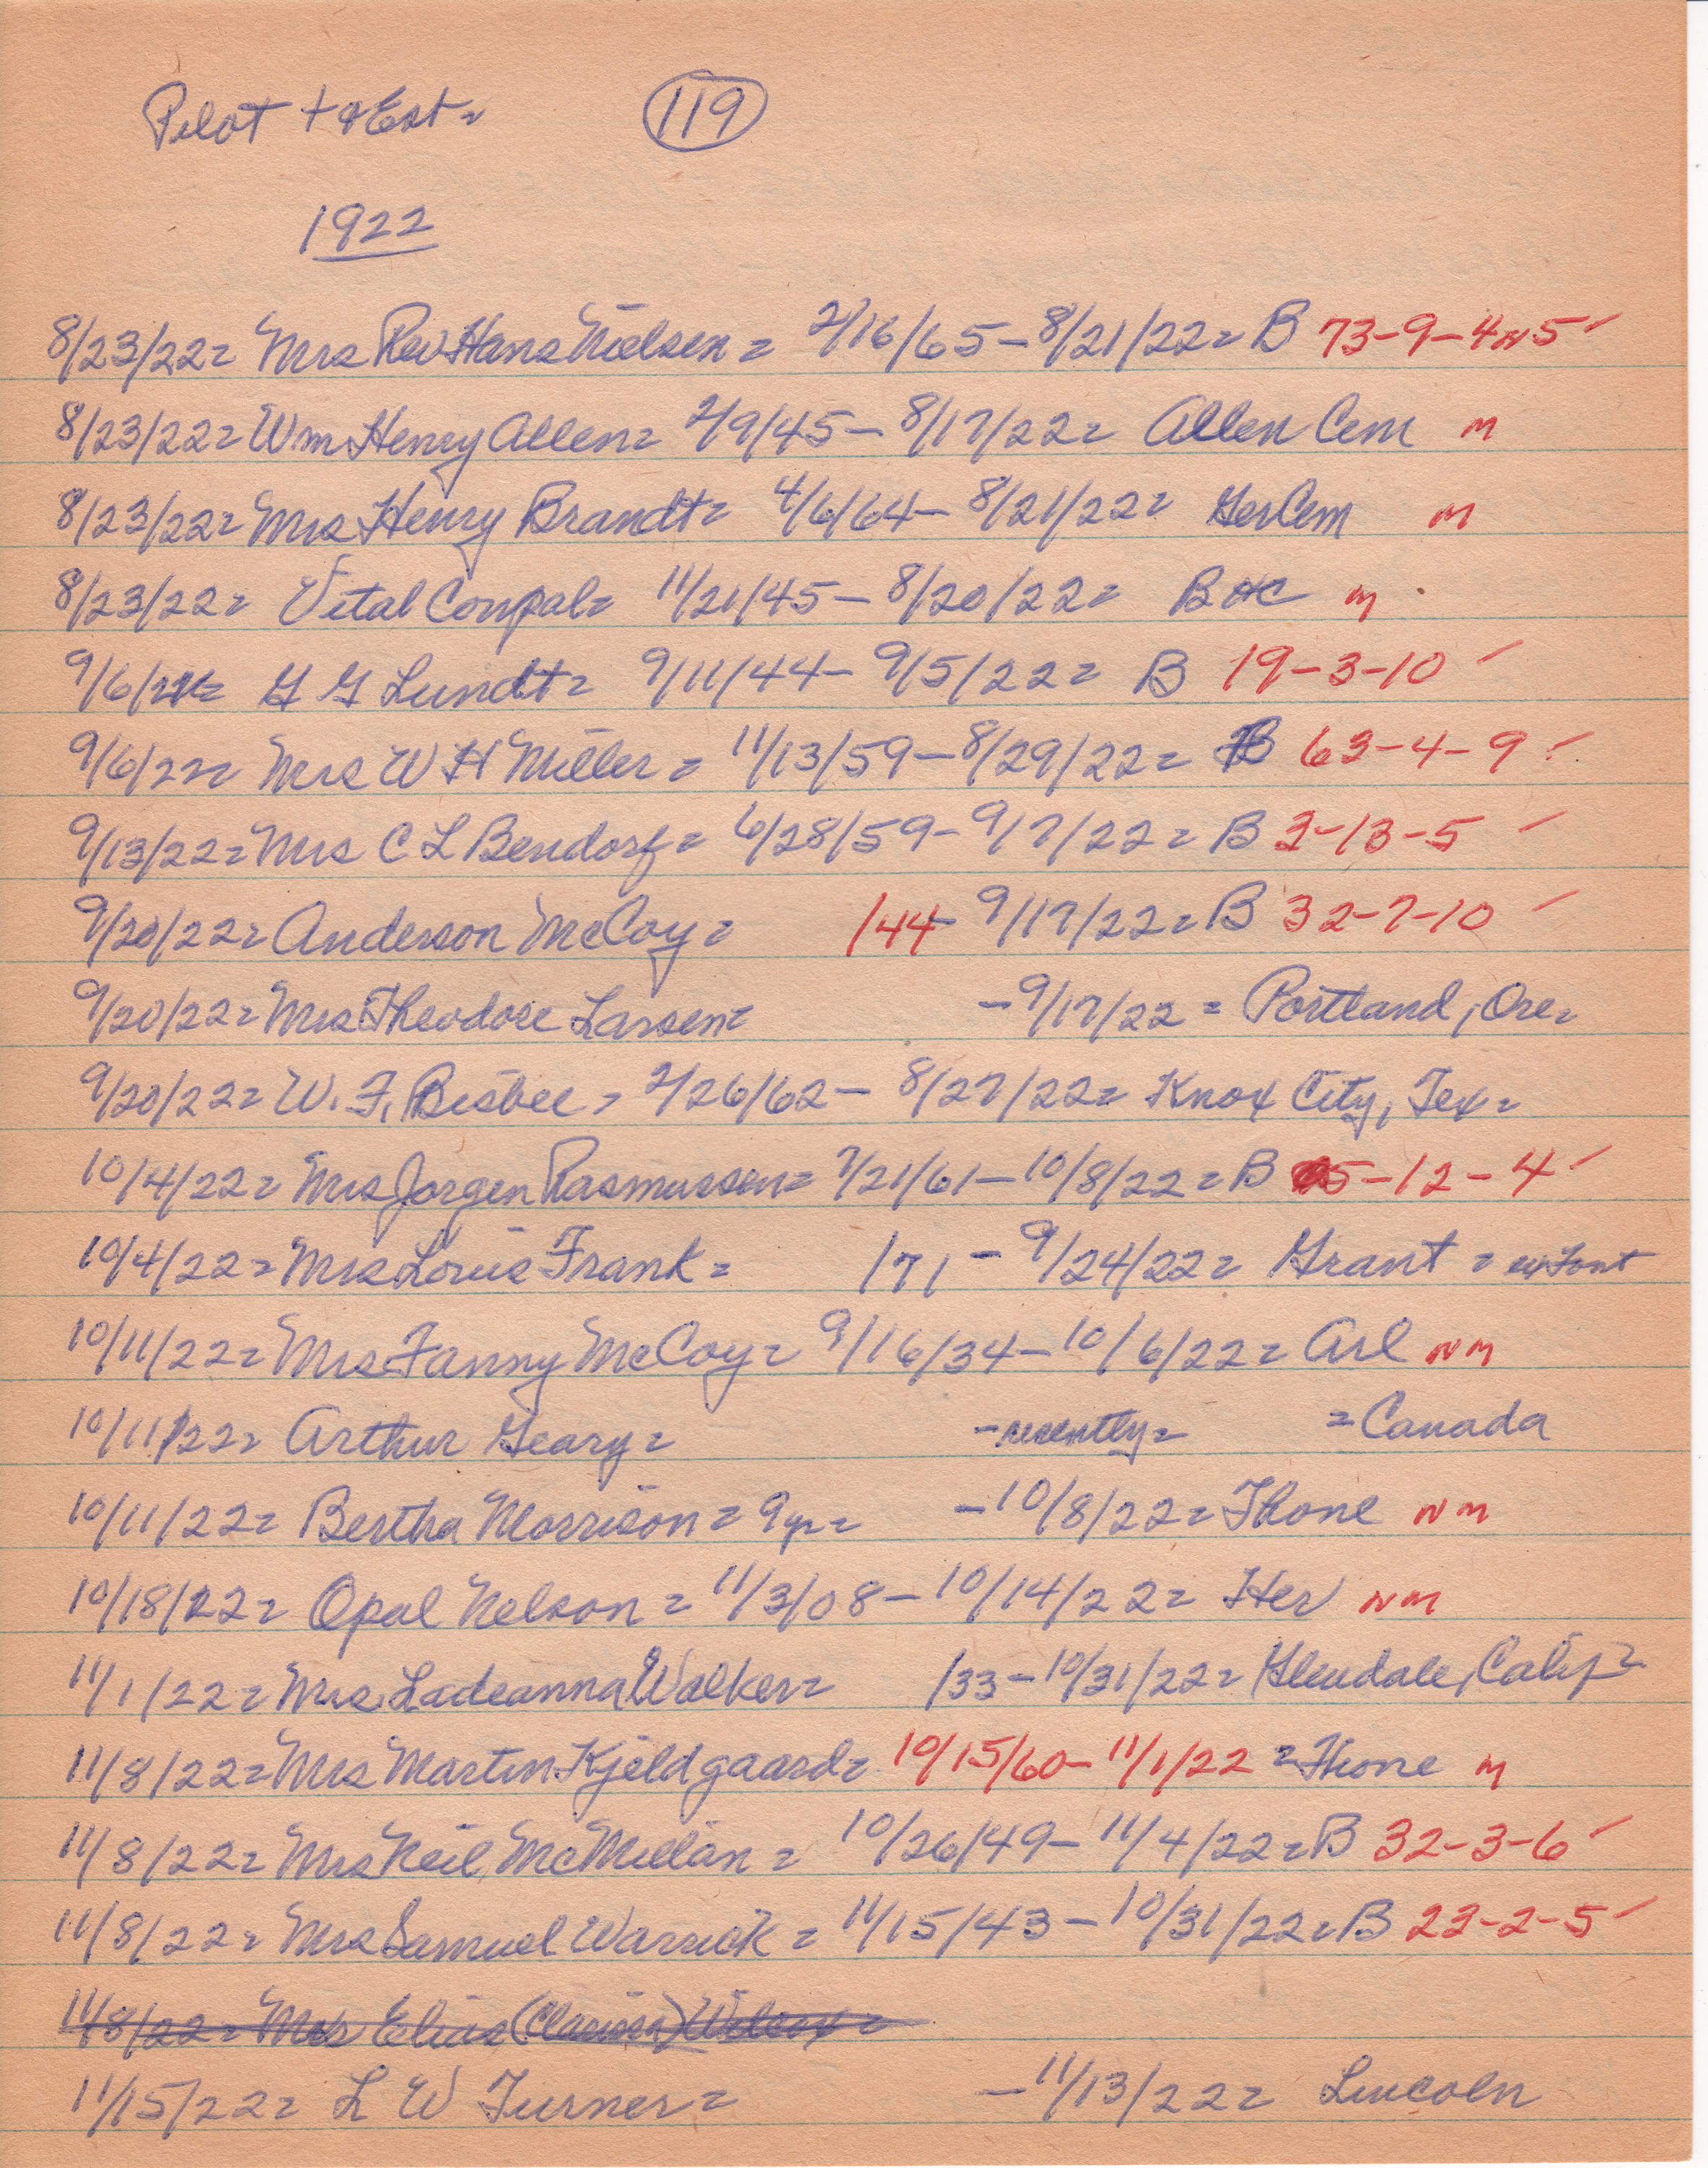 Pilot + & Ent= 119
1922
8/23/22= Mrs Rev Hans Nielsen = 2/16/65-8/21/22= B 73-9-4N5 ✓
8/23/22= Wm Henry Allen= 2/9/45- 8/17/22= Allen Cem M
8/23/22= Mrs Henry Brandt= 4/6/64- 8/21/22= Ger Cem M
8/23/22= Vital Compal= 11/21/45- 8/20/22= BHC M
9/6/22= G G Lundt= 9/11/44- 9/5/22= B 19-3-10 ✓
9/6/22= Mrs W H Miller = 11/13/59-8/29/22= B 63-4-9 ✓
9/13/22= Mrs C L Bendorf= 6/28/59- 9/7/22= B 3-13-5 ✓
9/20/22= Anderson McCoy= /44- 9/17/22= B 32-7-10 ✓
9/20/22= Mrs Theodore Larsen= -9/17/22= Portland, Ore=
9/20/22= W. F. Bisbee= 2/26/62- 8/27/22= Knox City, Tex=
10/4/22= Mrs Jorgen Rasmussen= 7/21/61-10/8/22= B 5-12-4 ✓
10/4/22= Mrs Louis Frank= /71- 9/24/22= Grant =
10/11/22= Mrs Fanny McCoy= 9/16/34-10/6/22= Arl NM
10/11/22= Arthur Geary= -recently= =Canada
10/11/22= Bertha Morrison= 9yr= -10/8/22= Thone NM
10/18/22= Opal Nelson= 11/3/08-10/14/22= Her NM
11/1/22= Mrs Ladeanna Walker= /33-10/31/22= Glendale, Calif=
11/8/22= Mrs Martin Kjeldgaard= 10/15/60-11/1/22 =Thone M
11/8/22= Mrs Neil McMillan= 10/26/49-11/4/22= B 32-3-6 ✓
11/8/22= Mrs Samuel Warrick= 11/15/43-10/31/22= B 23-2-5 ✓
11/8/22= Mrs Elias (Clarissa) Wilcox=
11/15/22= L W Turner= -11/13/22= Lincoln